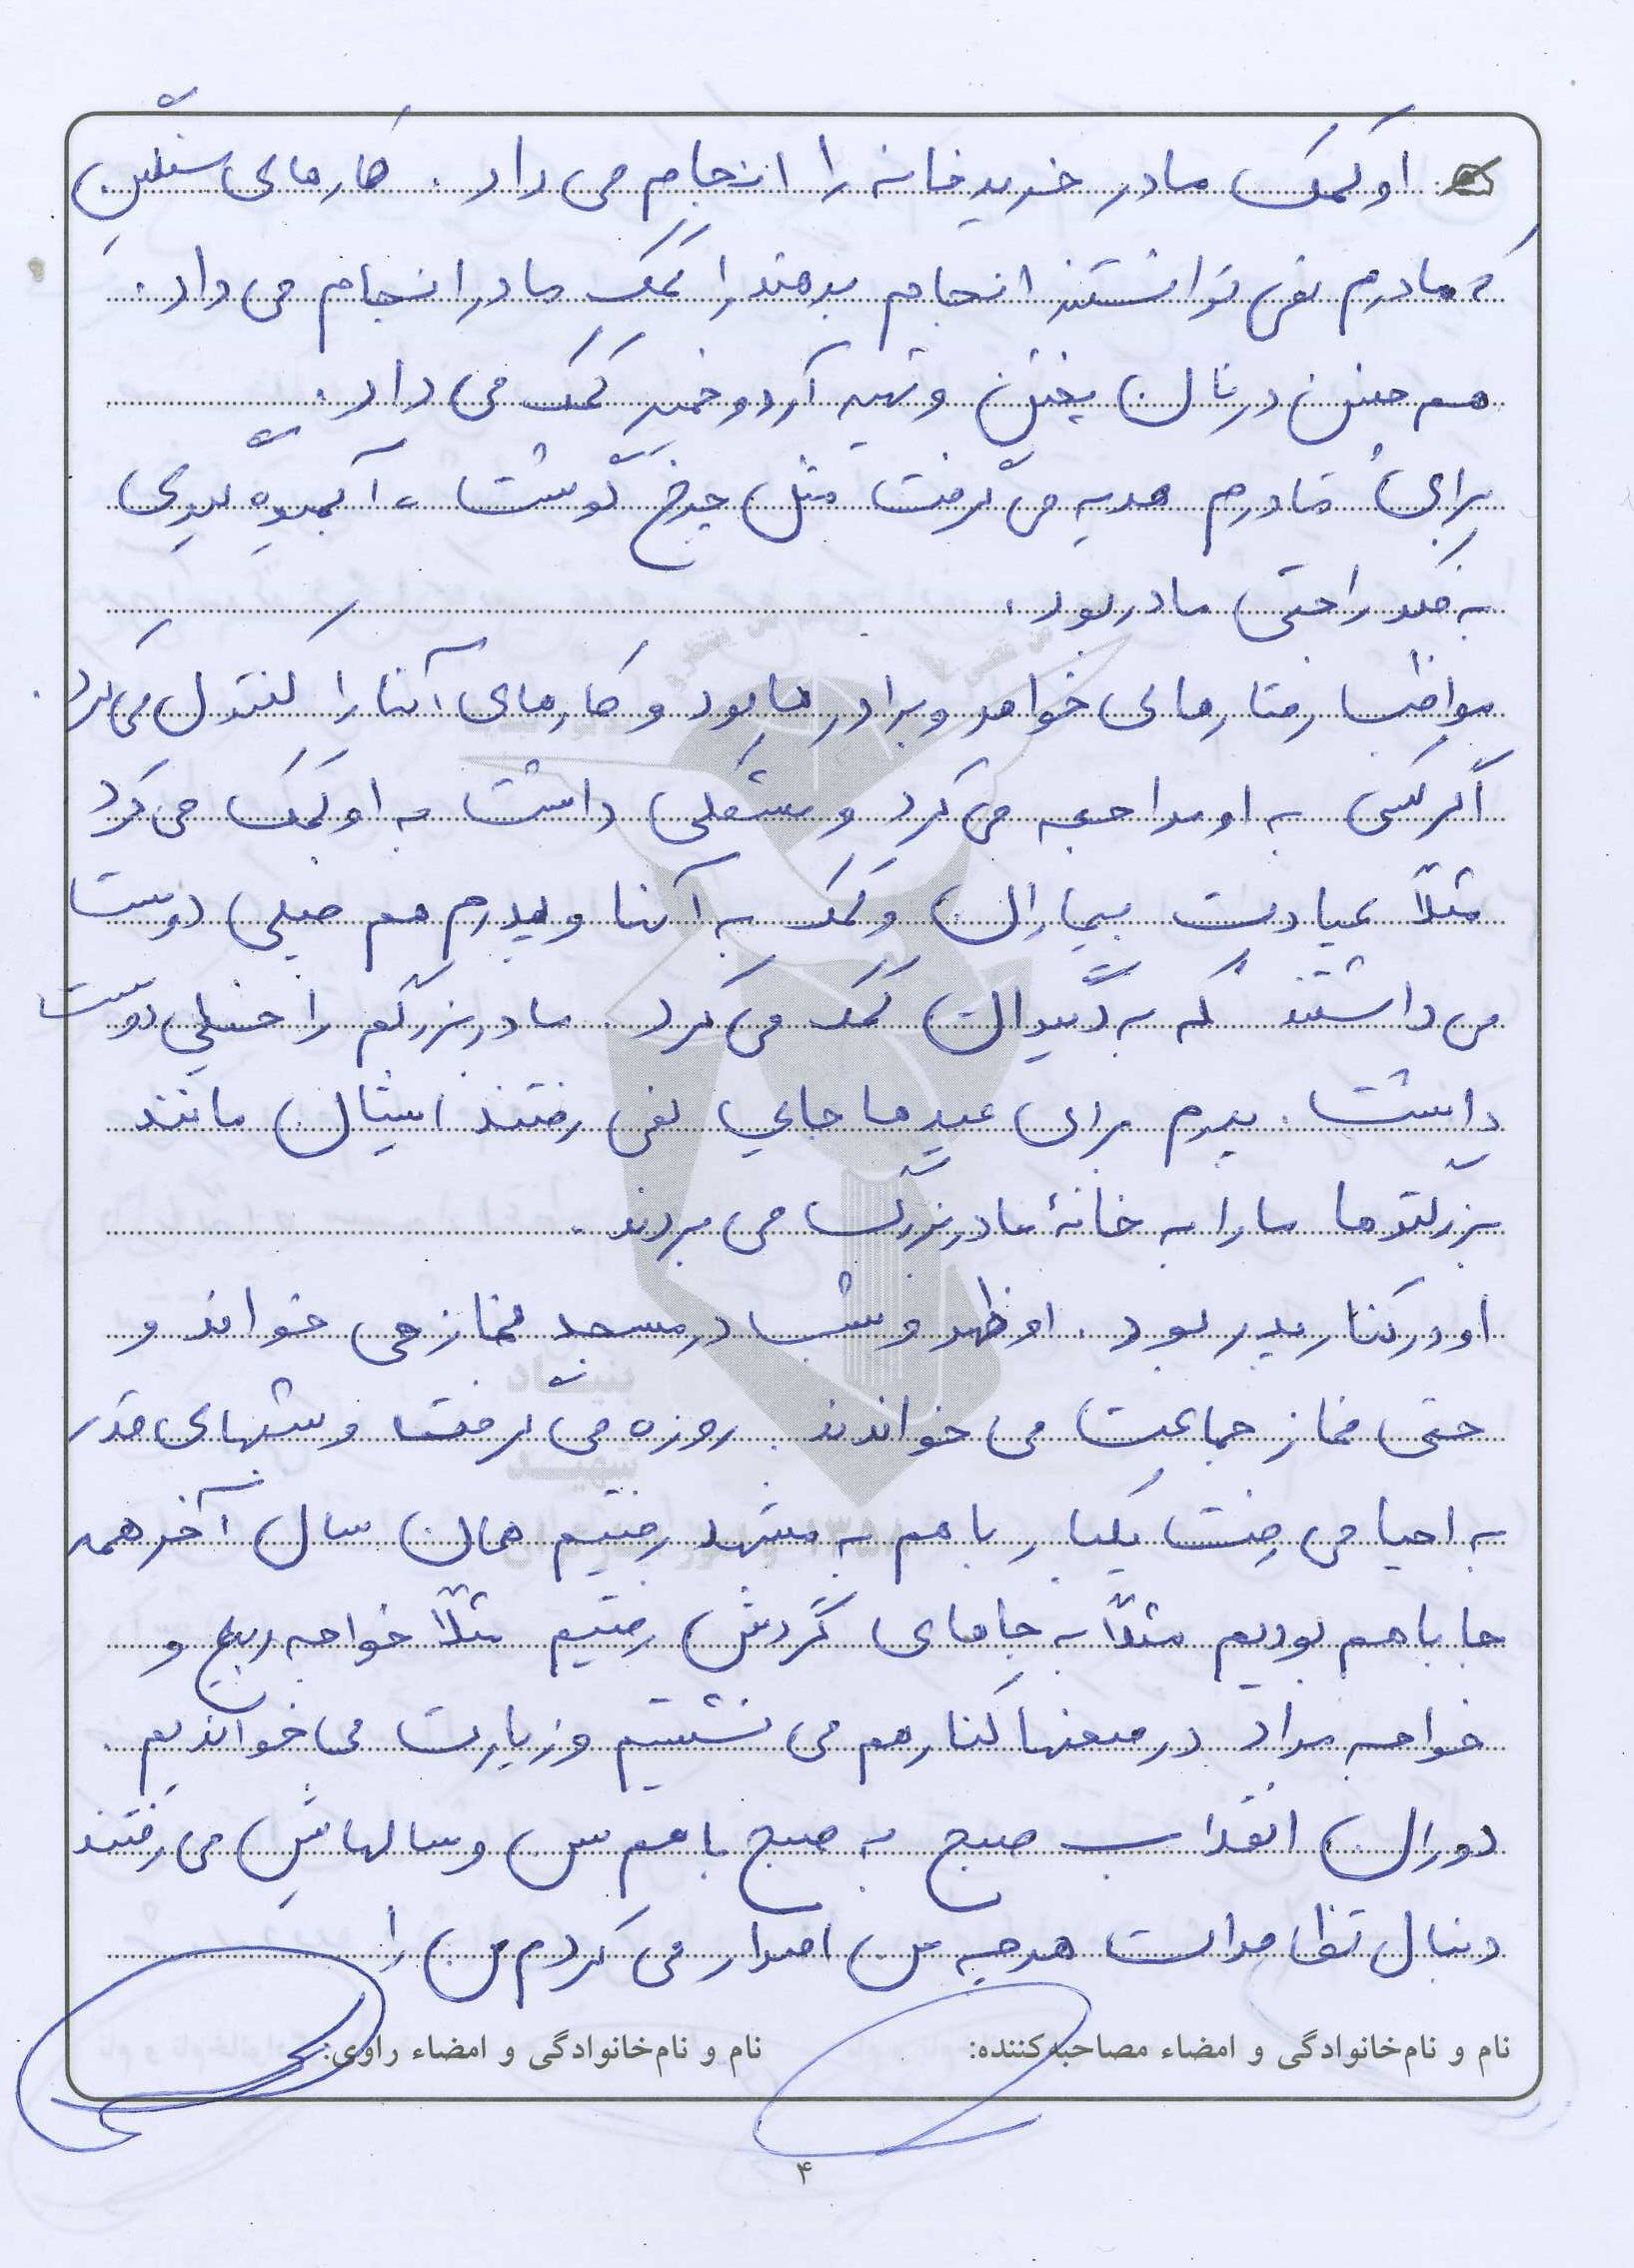 او کمک مادر خرید خانه را انجام می داد . کارهای سنگین
که مادرم نمی توانستند انجام بدهند را کمک مادر انجام می داد .
هم چنین در نان پختن و تهیه آرد و خمیر کمک می داد .
برای مادرم هدیه می گرفت مثل چرخ گوشت ، آبمیوه گیری
به فکر راحتی مادر بود .
مواظب رفتارهای خواهر و برادرها بود و کارهای آنها را کنترل می کرد .
اگر کسی به او مراجعه می کرد و مشکلی داشت به او کمک می کرد
مثلاً عیادت بیماران و کمک به آنها و پدرم هم خیلی دوست
می داشتند که به دیگران کمک می کرد . مادربزرگم را خیلی دوست
داشت . پدرم برای عید ما جایی نمی رفتند ایشان مانند
بزرگترها ما را به خانهٔ مادربزرگ می بردند .
او در کنار پدر بود . او ظهر و شب در مسجد نماز می خواند و
حتی نماز جماعت می خواندند . روزه می گرفت و شبهای قدر
به احیا می رفت یکبار با هم به مشهد رفتیم همان سال آخر همه
جا با هم بودیم مثلاً به جاهای گردش رفتیم مثلاً خواجه ربیع و
خواجه مراد در صحنها کنار هم می نشستیم و زیارت می خواندیم .
دوران انقلاب صبح به صبح با هم سن و سالهاش می رفتند
دنبال تظاهرات هرچه من اصرار می کردم من را
نام و نام‌خانوادگی و امضاء مصاحبه‌کننده:
نام و نام‌خانوادگی و امضاء راوی:
۴